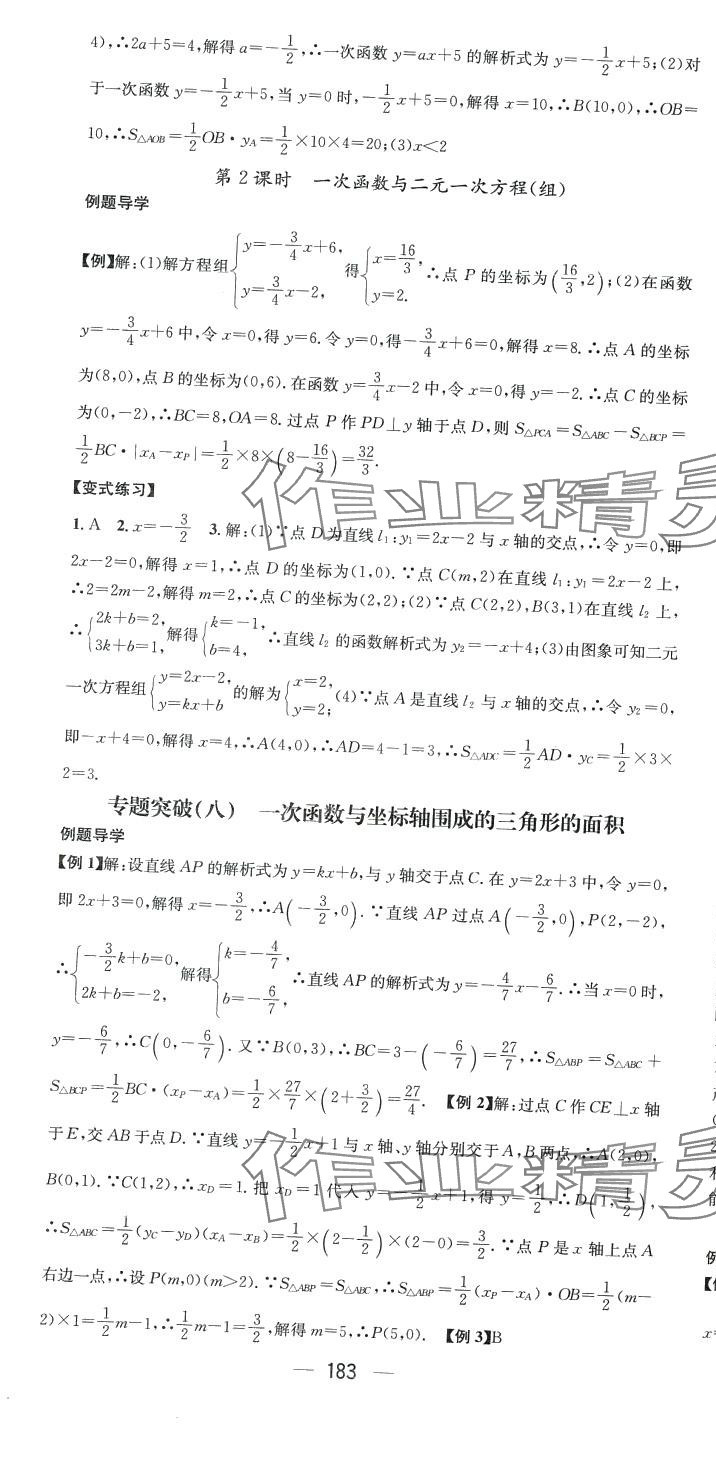 4),∴2a+5=4,解得 a=-1/2,∴一次函数 y=ax+5 的解析式为 y=-1/2x+5;(2)对
于一次函数 y=-1/2x+5,当 y=0 时,-1/2x+5=0,解得 x=10,∴B(10,0),∴OB=
10,∴S△AOB=1/2OB·yA=1/2×10×4=20;(3)x<2
第 2 课时 一次函数与二元一次方程(组)
例题导学
【例】解:(1)解方程组{y=-3/4x+6, y=3/4x-2, 得{x=16/3, y=2. ∴点 P 的坐标为(16/3,2);(2)在函数
y=-3/4x+6 中,令 x=0,得 y=6.令 y=0,得-3/4x+6=0,解得 x=8.∴点 A 的坐标
为(8,0),点 B 的坐标为(0,6).在函数 y=3/4x-2 中,令 x=0,得 y=-2.∴点 C 的坐标
为(0,-2),∴BC=8,OA=8.过点 P 作 PD⊥y 轴于点 D,则 S△PCA=S△ABC-S△BCP=
1/2BC·|xA-xP|=1/2×8×(8-16/3)=32/3.
【变式练习】
1.A 2.x=-3/2 3.解:(1)∵点 D 为直线 l1:y1=2x-2 与 x 轴的交点,∴令 y=0,即
2x-2=0,解得 x=1,∴点 D 的坐标为(1,0).∵点 C(m,2)在直线 l1:y1=2x-2 上,
∴2=2m-2,解得 m=2,∴点 C 的坐标为(2,2);(2)∵点 C(2,2),B(3,1)在直线 l2 上,
∴{2k+b=2, 3k+b=1, 解得{k=-1, b=4, ∴直线 l2 的函数解析式为 y2=-x+4;(3)由图象可知二元
一次方程组{y=2x-2, y=kx+b 的解为{x=2, y=2; (4)∵点 A 是直线 l2 与 x 轴的交点,∴令 y2=0,
即-x+4=0,解得 x=4,∴A(4,0),∴AD=4-1=3,∴S△ADC=1/2AD·yC=1/2×3×
2=3.
专题突破(八) 一次函数与坐标轴围成的三角形的面积
例题导学
【例 1】解:设直线 AP 的解析式为 y=kx+b,与 y 轴交于点 C.在 y=2x+3 中,令 y=0,
即 2x+3=0,解得 x=-3/2,∴A(-3/2,0).∵直线 AP 过点 A(-3/2,0),P(2,-2),
∴{-3/2k+b=0, 2k+b=-2, 解得{k=-4/7, b=-6/7, ∴直线 AP 的解析式为 y=-4/7x-6/7.∴当 x=0 时,
y=-6/7,∴C(0,-6/7).又∵B(0,3),∴BC=3-(-6/7)=27/7,∴S△ABP=S△ABC+
S△BCP=1/2BC·(xP-xA)=1/2×27/7×(2+3/2)=27/4. 【例 2】解:过点 C 作 CE⊥x 轴
于 E,交 AB 于点 D.∵直线 y=-1/2x+1 与 x 轴、y 轴分别交于 A,B 两点,∴A(2,0),
B(0,1).∵C(1,2),∴xD=1.把 xD=1 代入 y=-1/2x+1,得 y=1/2,∴D(1,1/2),
∴S△ABC=1/2(yC-yD)(xA-xB)=1/2×(2-1/2)×(2-0)=3/2.∵点 P 是 x 轴上点 A
右边一点,∴设 P(m,0)(m>2).∵S△ABP=S△ABC,∴S△ABP=1/2(xP-xA)·OB=1/2(m-
2)×1=1/2m-1,∴1/2m-1=3/2,解得 m=5,∴P(5,0). 【例 3】B
— 183 —
作业精灵
作业精灵